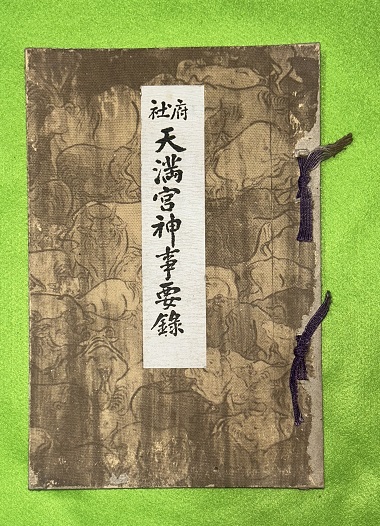 府社
天満宮神事要錄